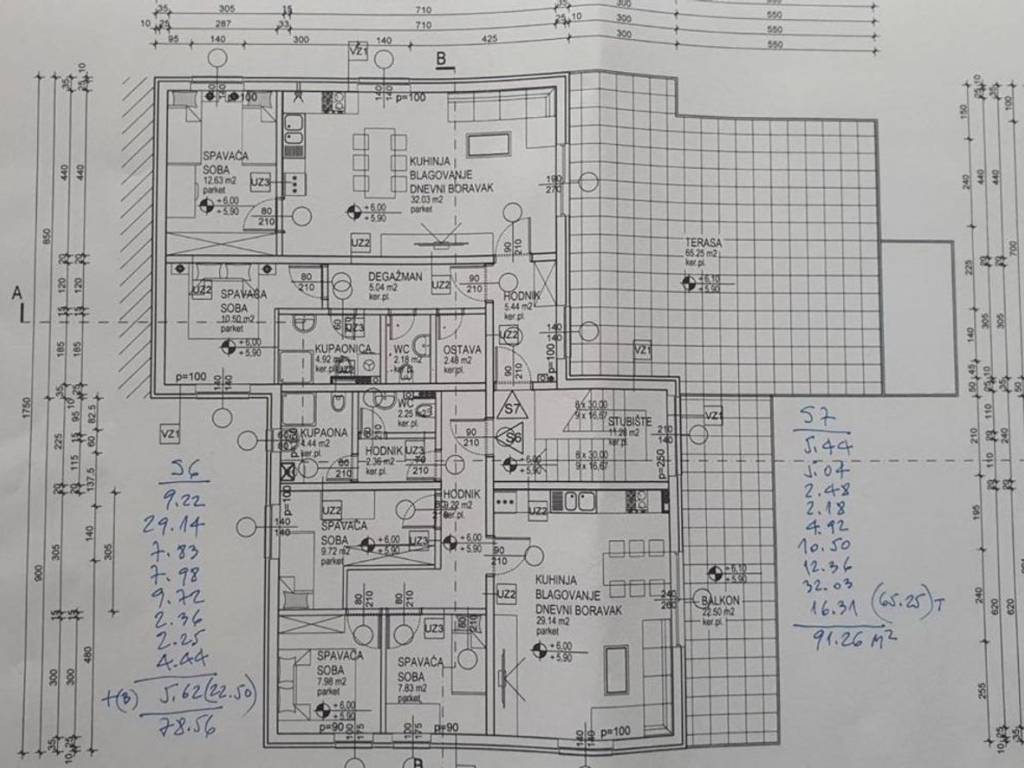 35 305 15 710 35 300 550
10 25 287 33 710 25 10 300 550
95 140 300 140 425 300 550
VZ1
B
p=100
140
140
p=100
SPAVAĆA
SOBA
12.63 m2
parket
UZ3
+6,00
+5,90
80
210
KUHINJA
BLAGOVANJE
DNEVNI BORAVAK
32.03 m2
parket
+6,00
+5,90
UZ2
190
270
90
210
TERASA
65.25 m2
ker.pl.
+6,10
+5,90
A
UZ2
SPAVAĆA
SOBA
10.50 m2
parket
+6,00
+5,90
p=100
140
140
80
210
DEGAŽMAN
5.04 m2
ker.pl.
UZ2
90
210
HODNIK
5.44 m2
ker.pl.
UZ2
140
140
p=100
90
210
VZ1
KUPAONICA
4.92 m2
ker.pl.
UZ3
WC
2.18 m2
ker.pl.
OSTAVA
2.48 m2
ker.pl.
S7
S6
8 x 30,00
9 x 16,67
STUBIŠTE
11.28 m2
ker.pl.
8 x 30,00
9 x 16,67
VZ1
210
140
p=250
90
210
VZ1
KUPAONA
4.44 m2
ker.pl.
WC
2.25 m2
ker.pl.
HODNIK
2.36 m2
ker.pl.
UZ3
80
210
HODNIK
9.22 m2
ker.pl.
+6,00
+5,90
p=100
140
140
UZ2
SPAVAĆA
SOBA
9.72 m2
parket
+6,00
+5,90
UZ3
UZ2
90
210
UZ2
KUHINJA
BLAGOVANJE
DNEVNI BORAVAK
29.14 m2
parket
+6,00
+5,90
240
260
BALKON
22.50 m2
ker.pl.
+5,90
80
210
80
210
UZ3
SPAVAĆA
SOBA
7.98 m2
parket
+6,00
+5,90
SPAVAĆA
SOBA
7.83 m2
parket
p=90
100
175
100
175
p=90
140
140
p=100
B
1750
850
900
440
120
185
225
305
300
480
137,5
82,5
S6
9.22
29.14
7.83
7.98
9.72
2.36
2.25
4.44
+(B) 5.62 (22.50)
78.56
S7
5.44
5.04
2.48
2.18
4.92
10.50
12.36
32.03
16.31 (65.25) T
91.26 m2
150
240
225
440
700
305
110
195
240
620
255